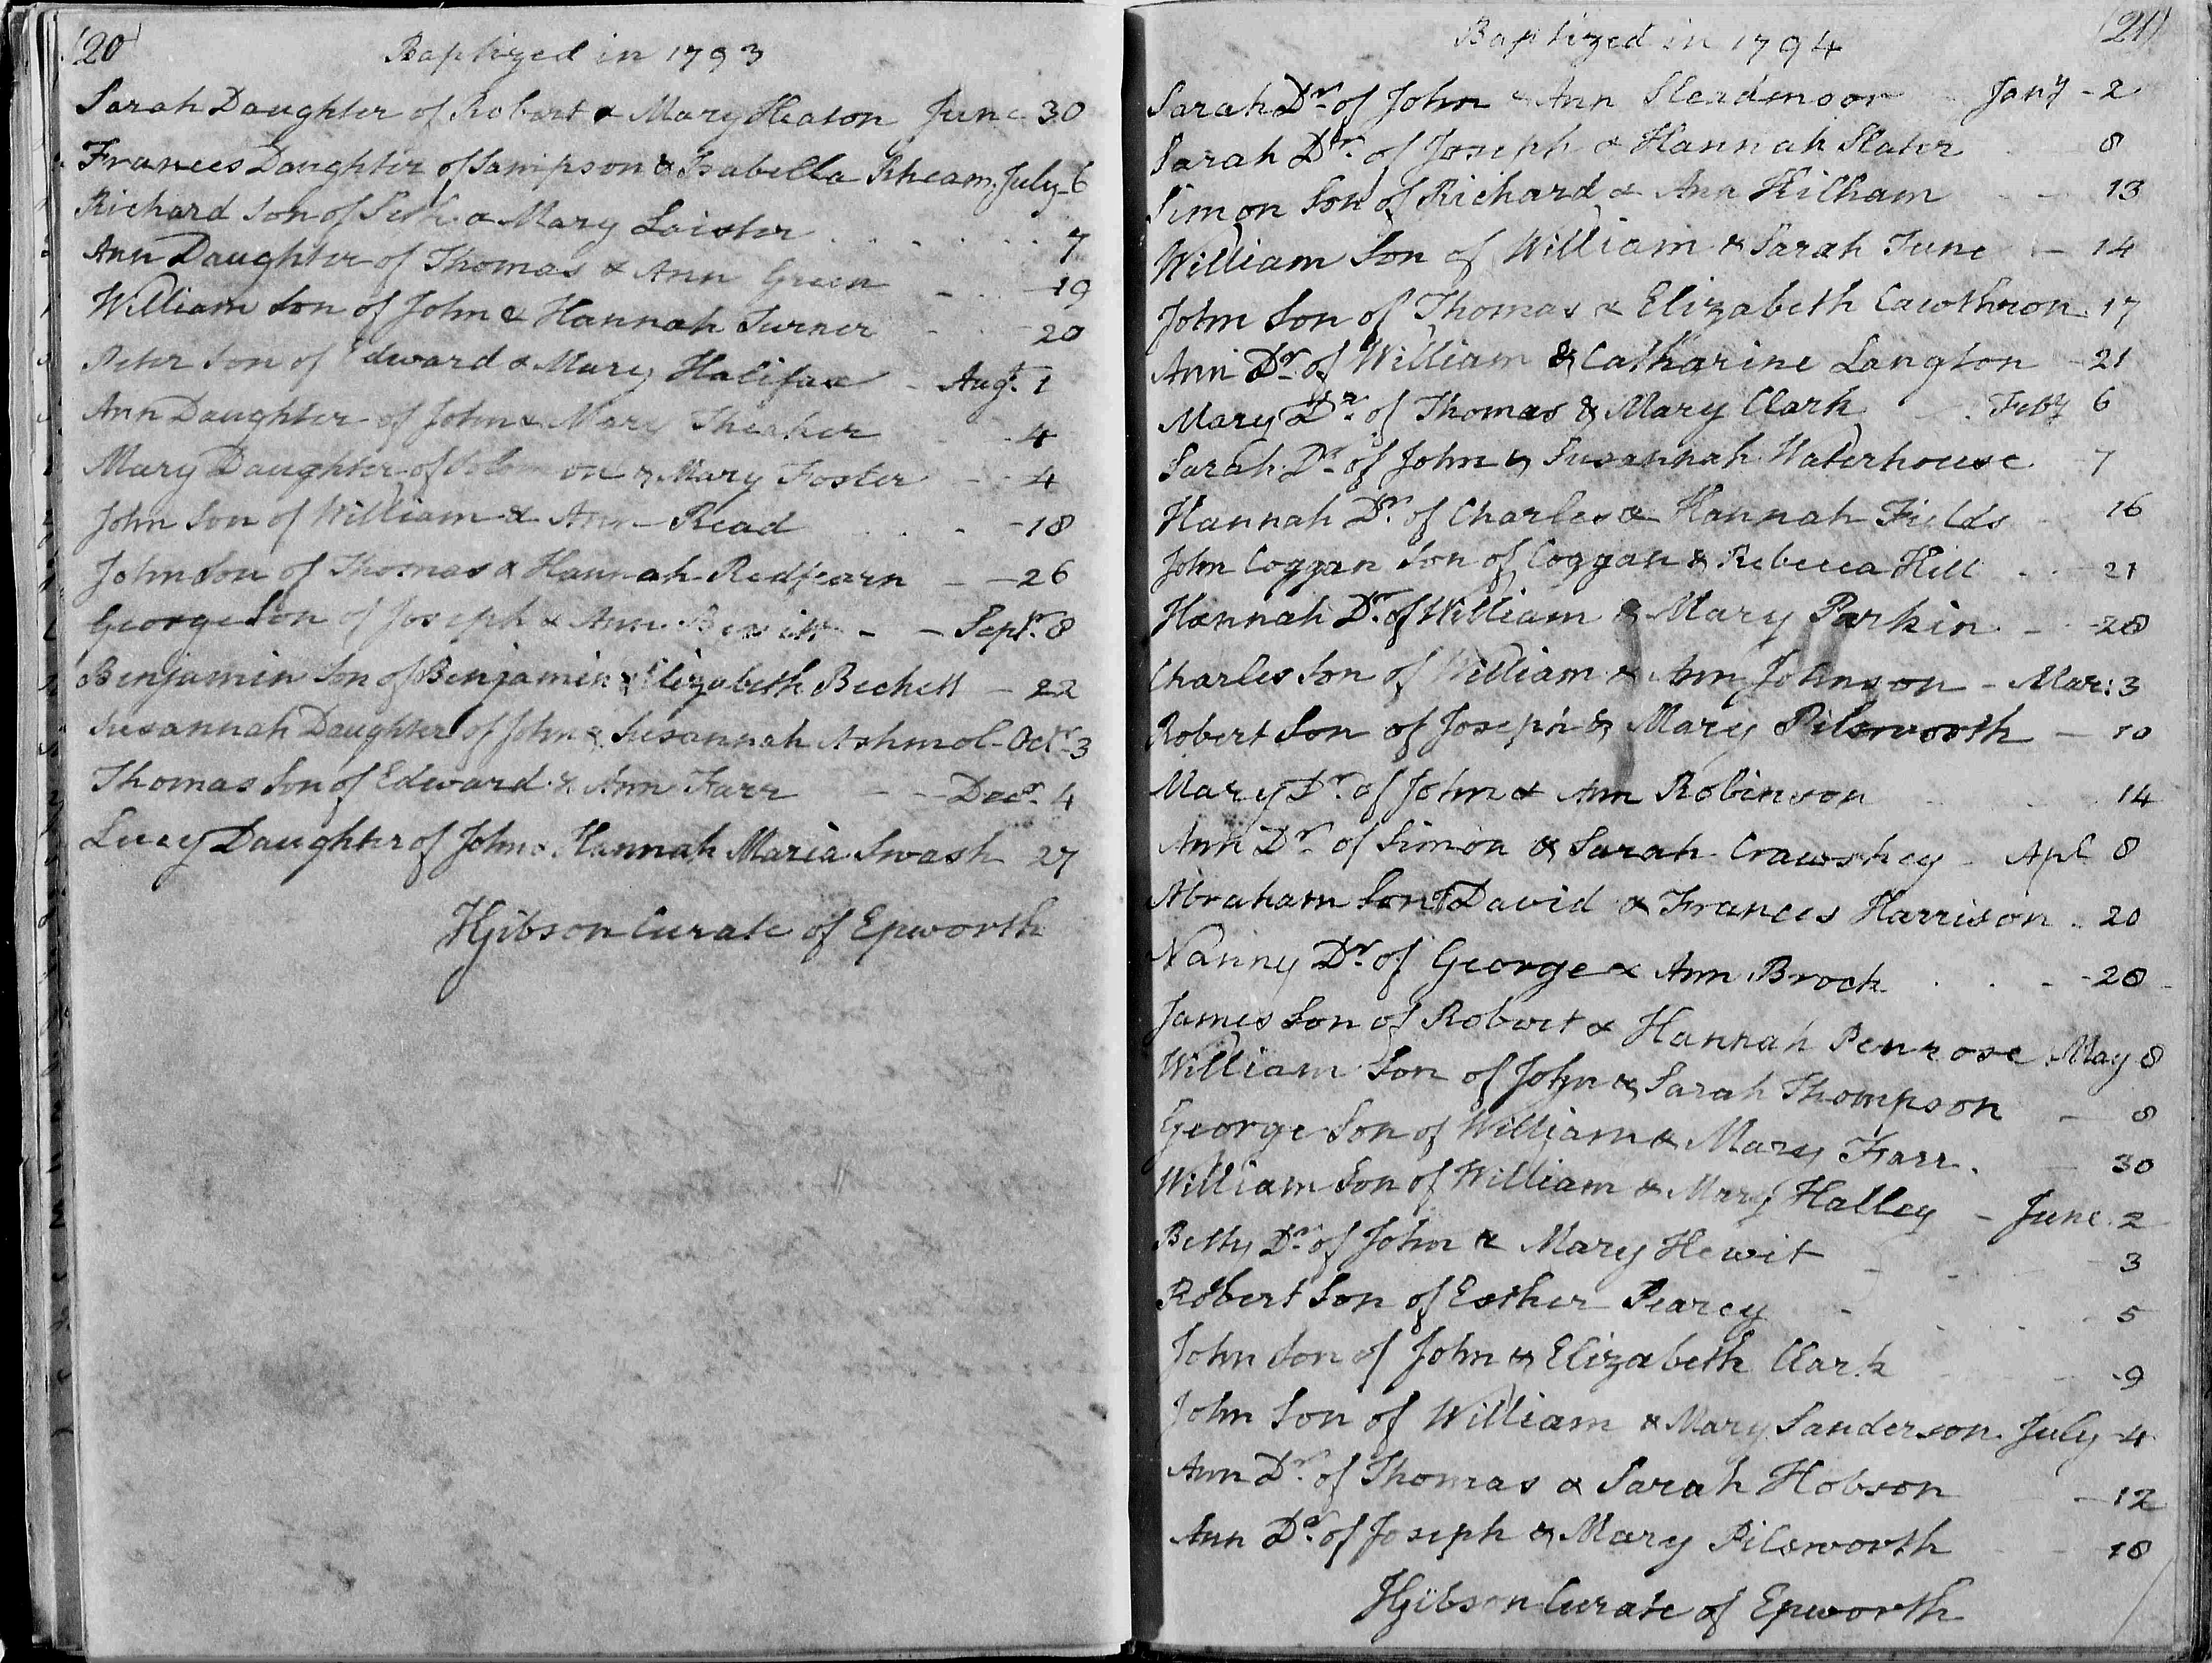 (20)
Baptized in 1793
Sarah Daughter of Robert & Mary Heaton June 30
Frances Daughter of Sampson & Isabella Rheam July 6
Richard Son of Seth & Mary Laister 7
Ann Daughter of Thomas & Ann Green 19
William Son of John & Hannah Turner 20
Peter Son of Edward & Mary Halifax - Augt. 1
Ann Daughter of John & Mary Theaker 4
Mary Daughter of Solomon & Mary Foster - 4
John Son of William & Ann Read - 18
John Son of Thomas & Hannah Redfearn - 26
George Son of Joseph & Ann - - Septr. 8
Benjamin Son of Benjamin & Elizabeth Beckett - 22
Susannah Daughter of John & Susannah Ashmol - Octr. 3
Thomas Son of Edward & Ann Farr - - Decr. 4
Lucy Daughter of John & Hannah Maria Swash 27
HGibson Curate of Epworth
(21)
Baptized in 1794
Sarah Dr. of John & Ann Jany - 2
Sarah Dr. of Joseph & Hannah Slater 8
Simon Son of Richard & Ann Kilham 13
William Son of William & Sarah Tune - 14
John Son of Thomas & Elizabeth Cawthron 17
Ann Dr. of William & Catharine Langton 21
Mary Dr. of Thomas & Mary Clark Feby 6
Sarah Dr. of John & Susannah Waterhouse 7
Hannah Dr. of Charles & Hannah Fields 16
John Coggan Son of Coggan & Rebecca Hill 21
Hannah Dr. of William & Mary Parkin - 28
Charles Son of William & Ann Johnson - Mar: 3
Robert Son of Joseph & Mary Pilsworth - 10
Mary Dr. of John & Ann Robinson 14
Ann Dr. of Simon & Sarah Crawshey - Apl 8
Abraham Son of David & Frances Harrison 20
Nanny Dr. of George & Ann Brock - 28
James Son of Robert & Hannah Penrose May 8
William Son of John & Sarah Thompson - 8
George Son of William & Mary Farr. 30
William Son of William & Mary Halley - June 2
Betty Dr. of John & Mary Hewit 3
Robert Son of Esther Pearcy 5
John Son of John & Elizabeth Clark 9
John Son of William & Mary Sanderson July 4
Ann Dr. of Thomas & Sarah Hobson 12
Ann Dr. of Joseph & Mary Pilsworth 18
HGibson Curate of Epworth